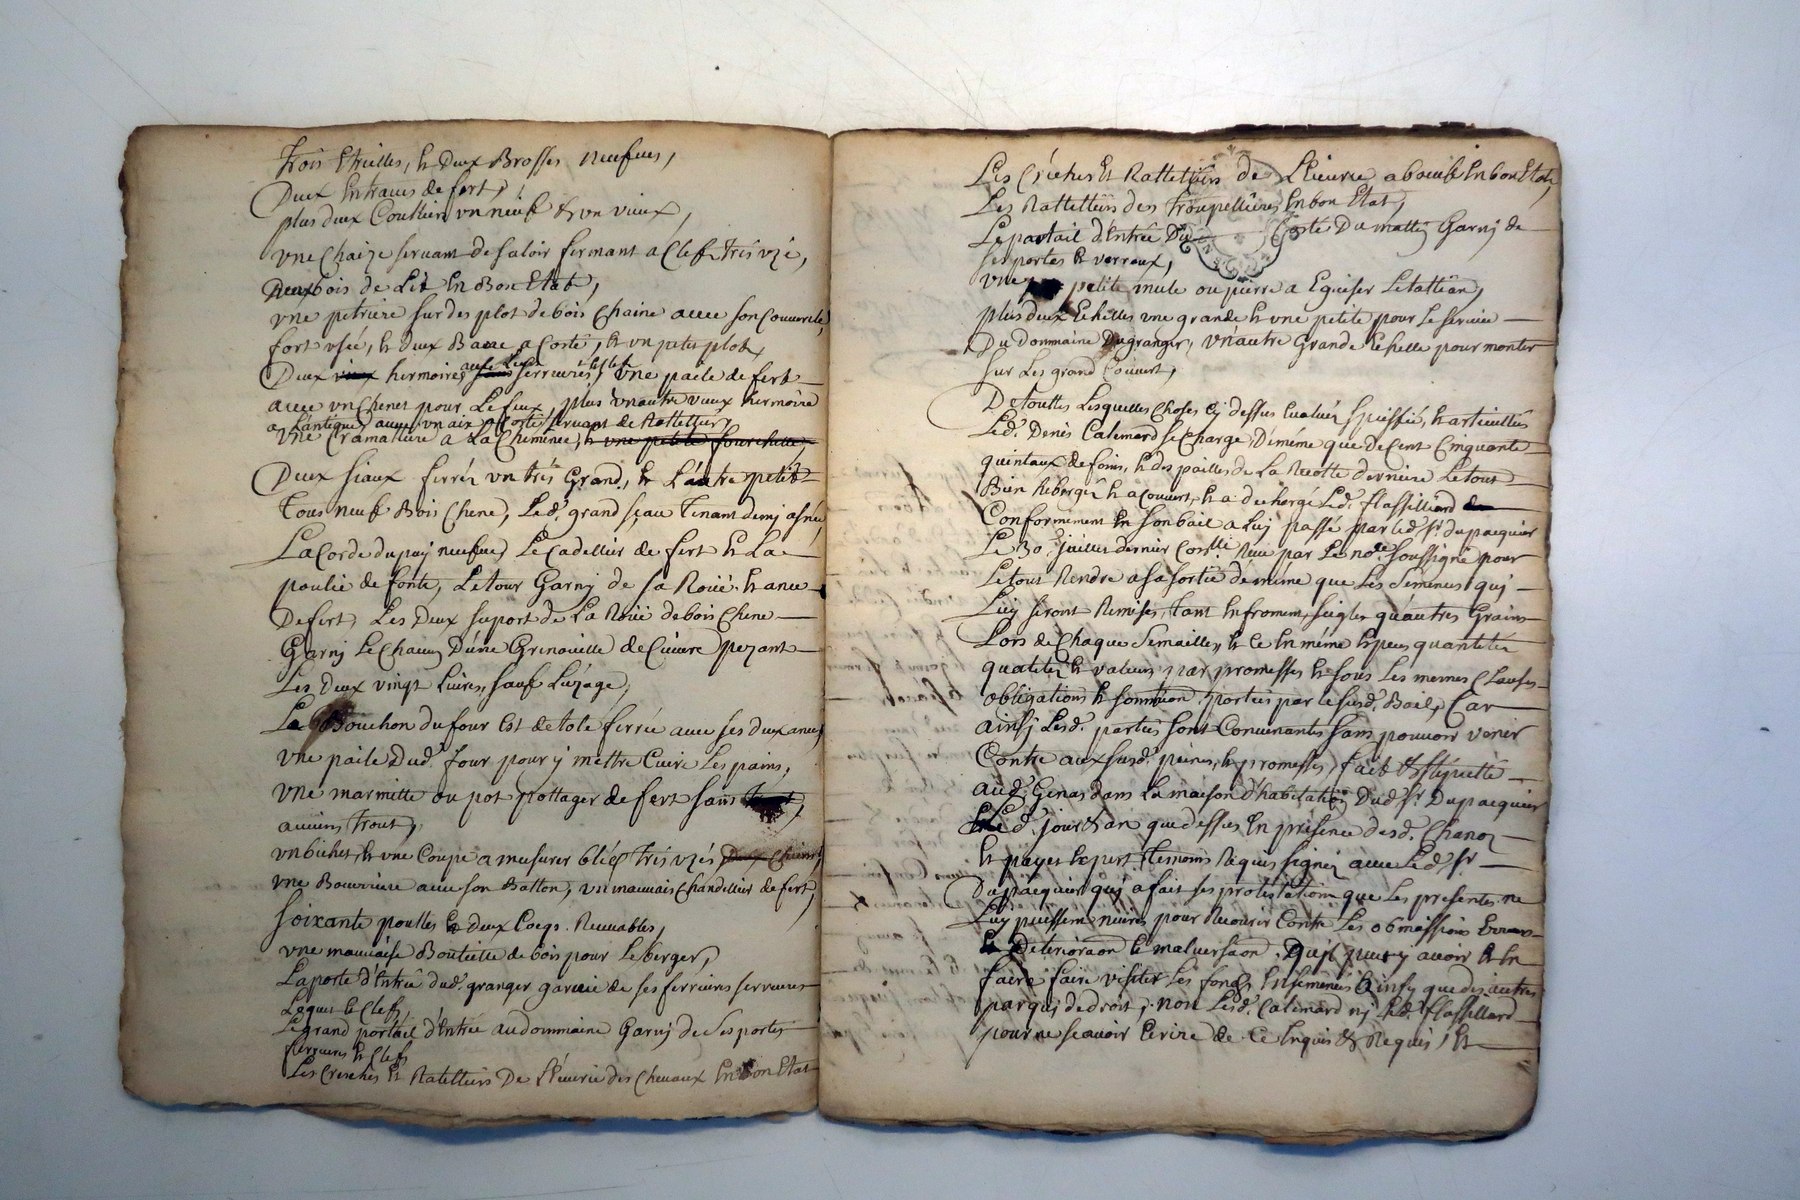 Trois Etrilles, Et Deux Brosses neufues,
Deux Entraues de fert,
plus deux Couttiers un neuf & un vieux,
une Chaize seruant de saloir fermant a Clef très uzé,
Deux bois de Lit En Bon Etat,
une petriere sur des plot de bois Chaine auec son Couuercle,
fort usée, Et deux Bancs a Costé, Et un petit plot,
Deux hermoires auec Leurs serrures, une paele de fert
auec un Chenet pour Le feux, plus un autre vieux hermoire
a Lantique, auec un aix a Costé seruant de Rattellier,
une Cramallere a La Cheminée, Et une petite fourchette,
Deux siaux ferréz un très Grand, Et L'autre petit
Tous neuf Bois Chene, Led. grand seau Tenant demj asnée,
La Corde du puy neufue, Le Cadellier de fert Et La
poulie de fonte, Le tour Garnj de sa Roüe Et ance
De fert, Les Deux suport de La Roüe de bois Chene
Garnj Le Chacun D'une Grenouille de Cuivre pezant
Les Deux vingt Liures, sauf Luzage,
Le Bouchon du four Est de tole ferrée auec ses deux ances,
une paile Dud. four pour y mettre Cuire Les pains,
une marmitte ou pot pottager de fert sans
aucuns trout,
un bichet, Et une Coupe a mesurer bléz très uzés
une Bouriere auec son Batton, un mauuais Chandellier de fert,
soixante poulles Et deux Coqs
une mauuaise Boutielle de bois pour Le berger,
La porte d'Entrée dud. granger garnie de ses ferrures serrures
Loquet Et Clefs,
Le grand portail d'Entrée au dommaine Garnj de ses portes
serrures Et Clefs
Les Creches Et Ratelliers De L'Ecurie des Cheuaux En Bon Etat
Les Créches Et Rattelliers de L'Ecurie a boeuf En bon Etat,
Les Rattelliers des Troupellieres En bon Etat,
Le portail d'Entrée Du Costé Du mattin Garnj de
ses portes Et verroux,
une petite mule ou pierre a Eguiser
plus deux Echelles une grande Et une petite pour Le seruice
Du dommaine Du granger, un autre Grande Echelle pour monter
sur Les grand Couuert,
De touttes Lesquelles Choses Cj dessus Eualués Et artiullées
Led. Denis Calemard se Charge, De méme que de Cent Cinquante
quintaux de foins, Et des pailles de La Recolte derniere Le tout
Bien hébergé Et a Couuert, Et a decherge Led. flassilliard
Conformement En son bail a Luj passé par Led. Sr. dupacquier
Le 30. juillet dernier Reçu par Le nore. soussigné pour
Le tout Rendre a sa sortie de même que Les semences quj
Luy seront Remises, Tant En froment, seigle qu'autres Grains
Lors de Chaque semailles, Et Ce En même Especes quantités
qualités Et valeurs, par promesses Et sous Les mémes Clauses
obligations Et portées par Le susd. Bail, Car
ainsy Lesd. parties sont Conuenantes sans pouuoir venir
Contre aux susd. peines, Et promesses, fait & stipullé
aud. Genas dans La maison d'habitation Dud. Sr. Dupacquier
Led. jour & an que dessus En présence desd. Chanoz
Et payet Expert Temoins Requis signéz auec Led. Sr.
Dupacquier quj a fait ses protestations que Les presentes ne
Luy puissent nuire, pour Recourir Contre Les obmissions
Et Deterioraon Et maluersaon. Quil peut y avoir Et En
faire faire visiter Les fonds Ensemencés ainsy que des autres
par quj de droit; non Led. Calemard nj Led. flassillard
pour ne sçauoir Ecrire de Ce Enquis & Requis, Et